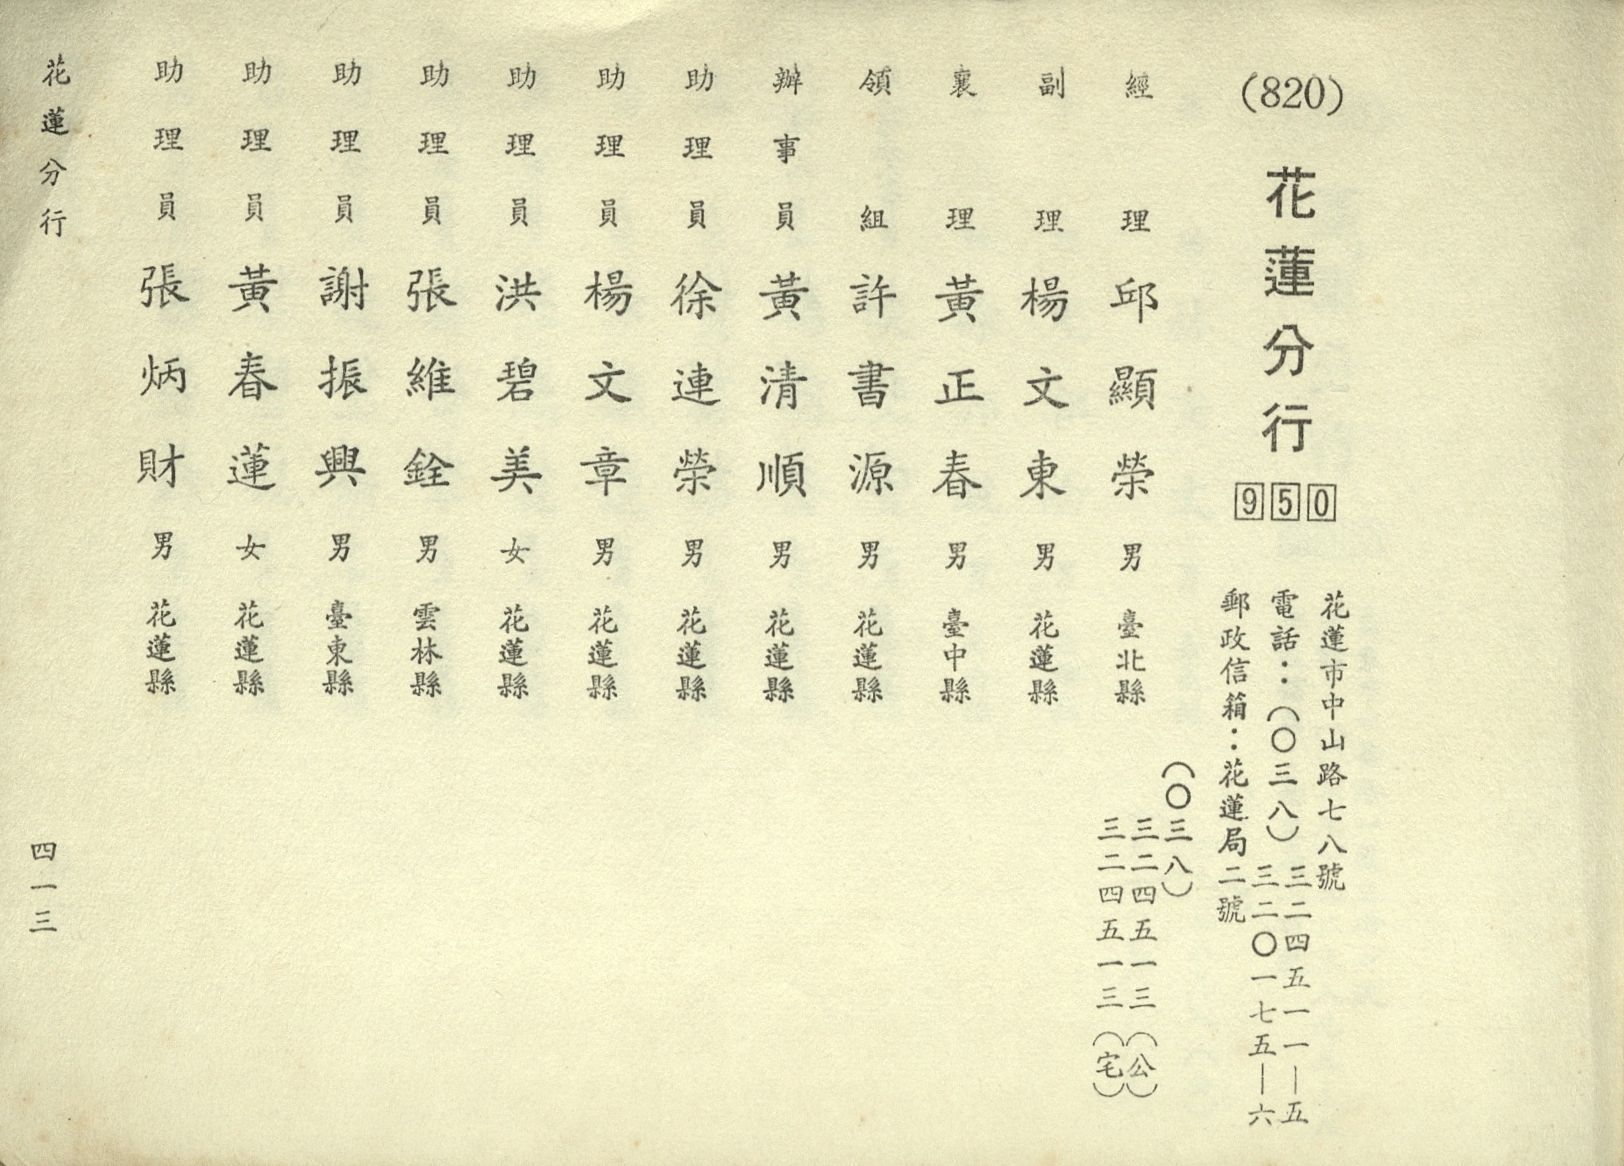 (820)花蓮分行950
花蓮市中山路七八號
電話：(〇三八)三二四五一一—五
三二〇一七五—六
郵政信箱：花蓮局二號
經理 邱顯榮 男 臺北縣
(〇三八)
三二四五一三(公)
三二四五一三(宅)
副理 楊文東 男 花蓮縣
襄理 黃正春 男 臺中縣
領組 許書源 男 花蓮縣
辦事員 黃清順 男 花蓮縣
助理員 徐連榮 男 花蓮縣
助理員 楊文章 男 花蓮縣
助理員 洪碧美 女 花蓮縣
助理員 張維銓 男 雲林縣
助理員 謝振興 男 臺東縣
助理員 黃春蓮 女 花蓮縣
助理員 張炳財 男 花蓮縣
花蓮分行
四一三